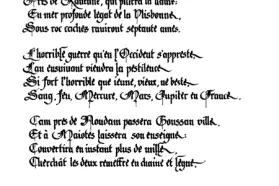 En mer profonde legat de la Ulisbonne.
Sous roc cachez raviront septante ames.
L'horrible guerre qu'en l'Occident s'appreste
L'an ensuivant viendra la pestilence
Si fort l'horrible que jeune, vieux, ne beste,
Sang, feu, Mercure, Mars, Jupiter en France.
Cam pres de Noudam passera Goussan ville,
Et à Maiotes laissera son enseigne:
Convertira en instant plus de mille,
Cherchât les deux remettre en chaine et legne.